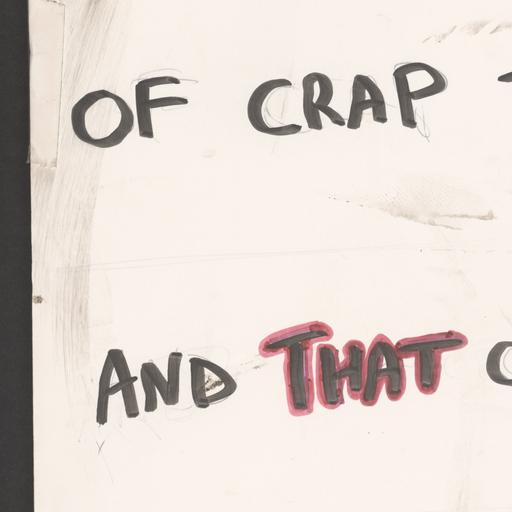 OF CRAP
AND THAT